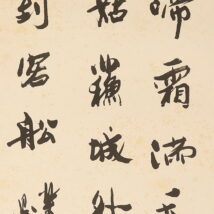 啼霜满天
姑蘇城外
到客船